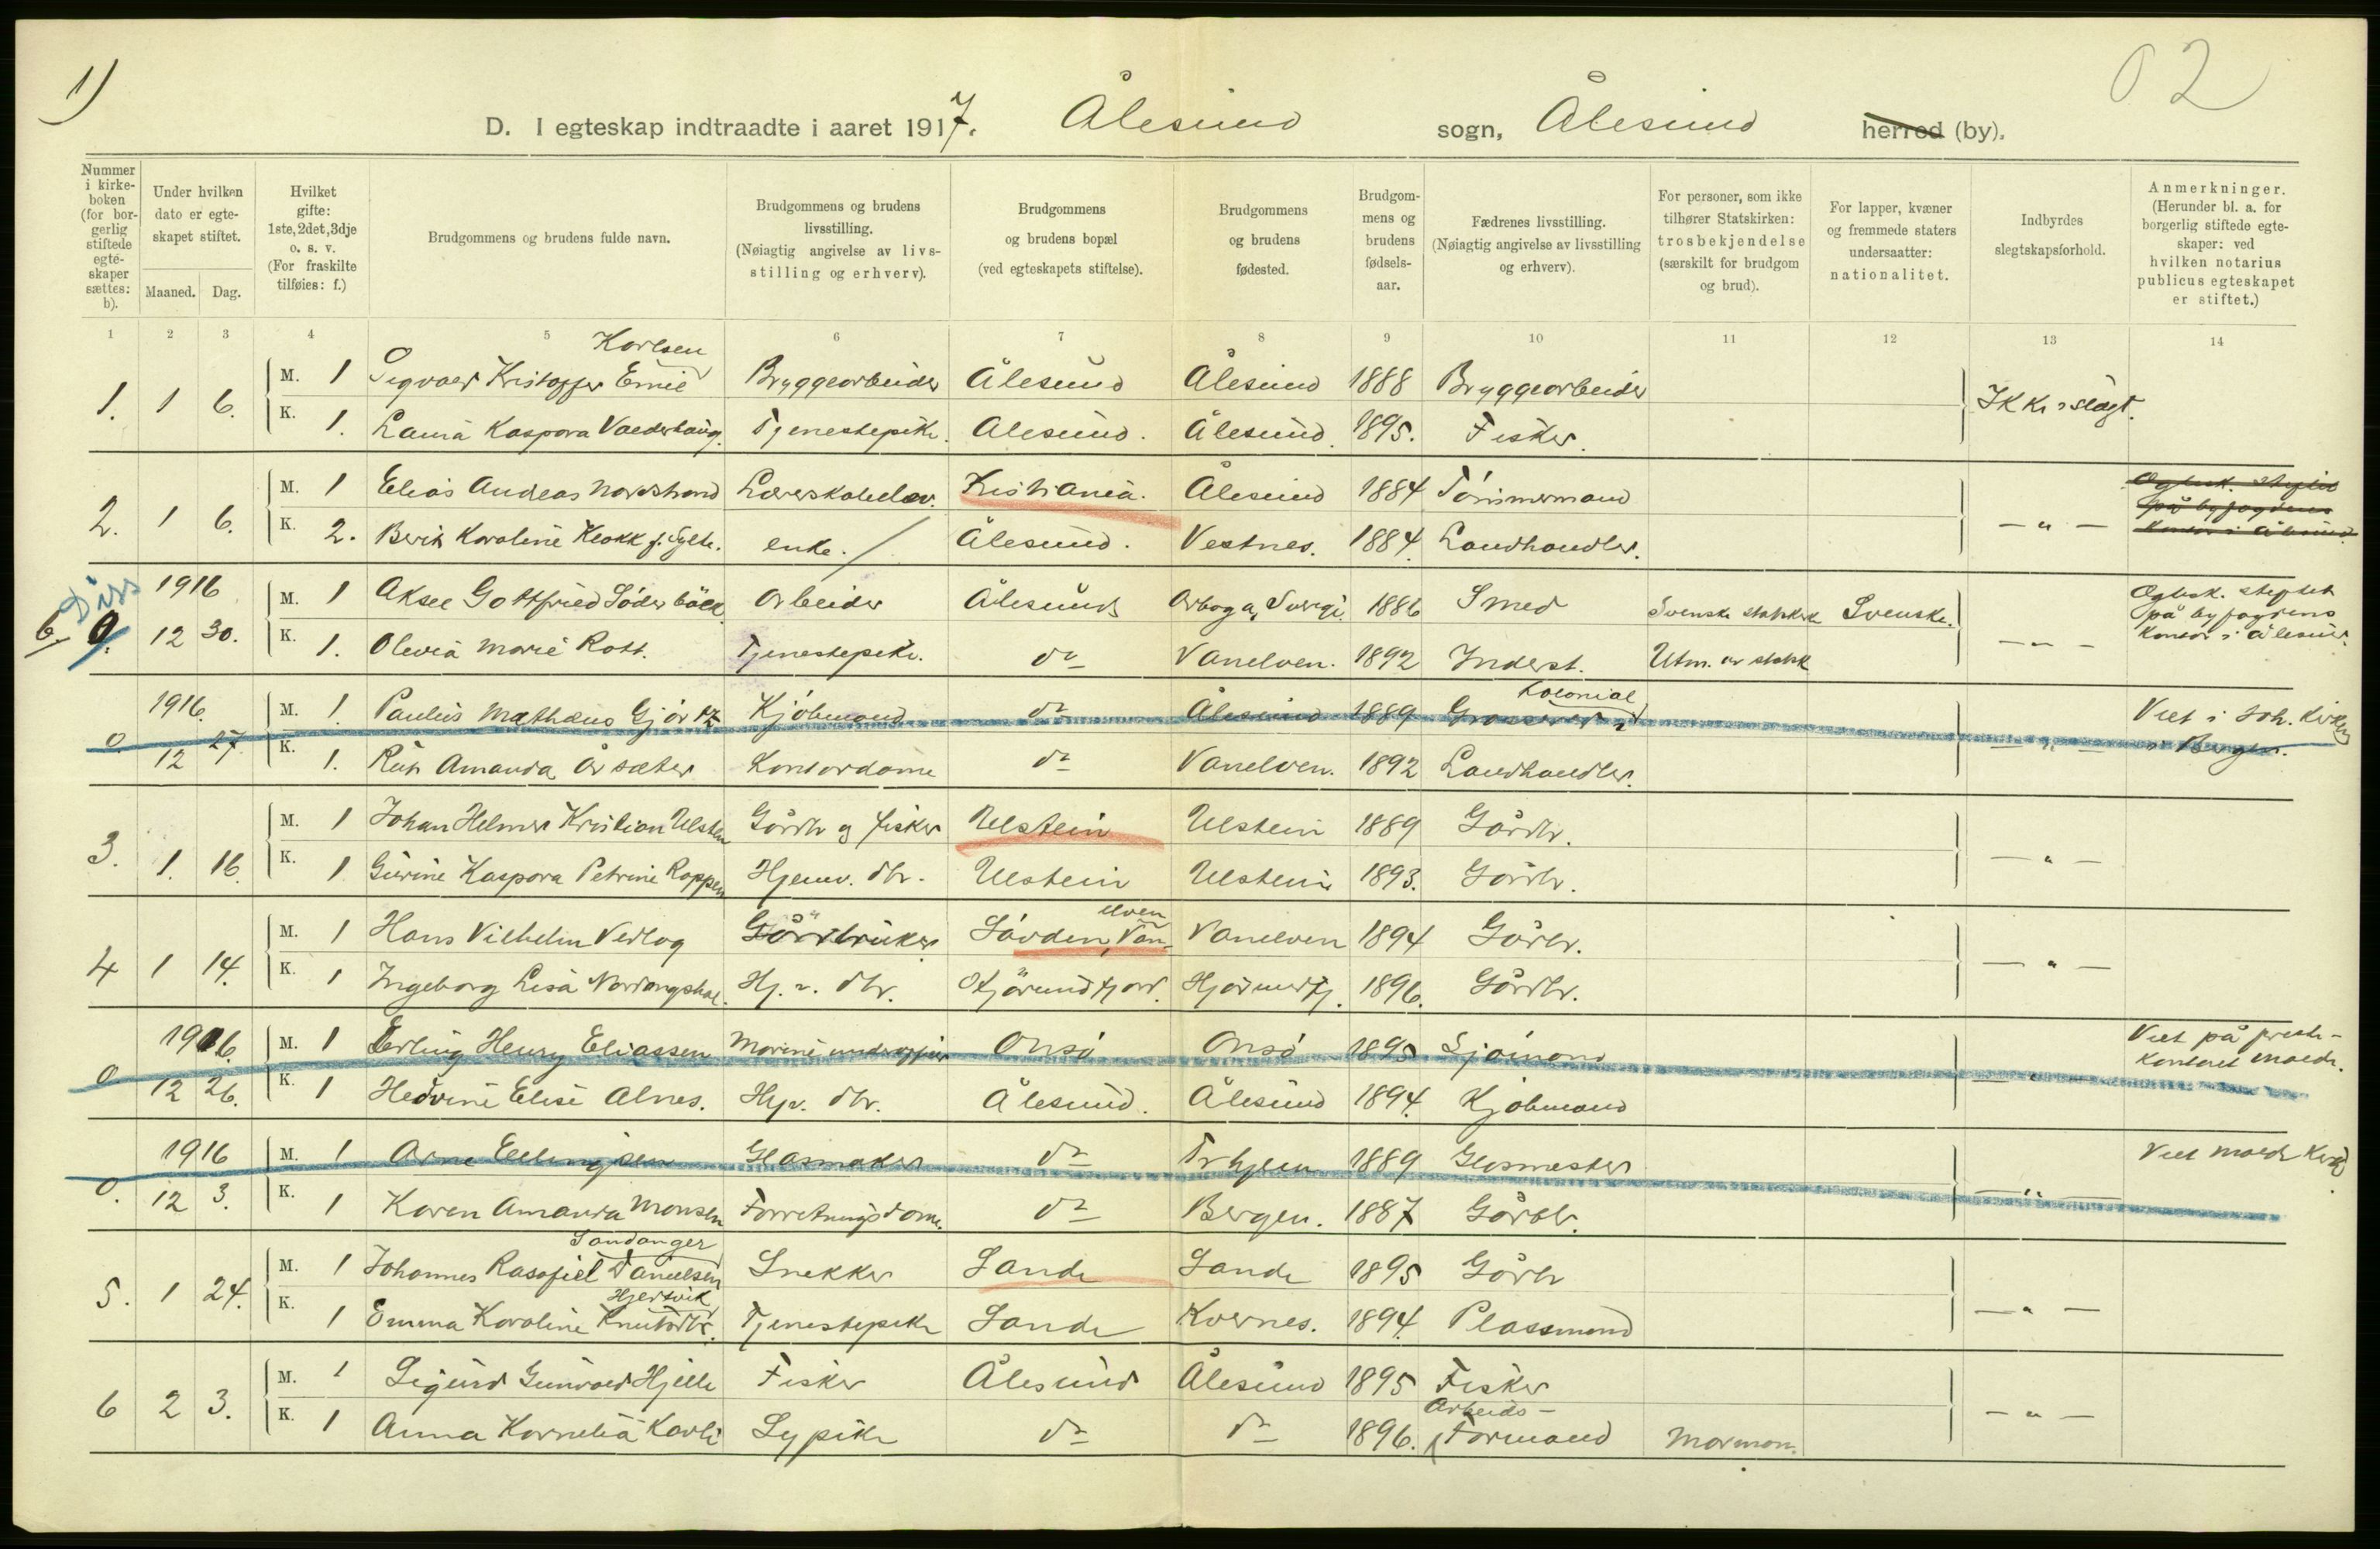 1)
02
D. I egteskap indtraadte i aaret 1917. Ålesund sogn, Ålesund herred (by).
Nummer i kirkeboken (for borgerlig stiftede egteskaper sættes: b).
Under hvilken dato er egteskapet stiftet.
Maaned. Dag.
Hvilket gifte: 1ste, 2det, 3dje o. s. v. (For fraskilte tilføies: f.)
Brudgommens og brudens fulde navn.
Brudgommens og brudens livsstilling. (Nøiagtig angivelse av livsstilling og erhverv).
Brudgommens og brudens bopæl (ved egteskapets stiftelse).
Brudgommens og brudens fødested.
Brudgommens og brudens fødselsaar.
Fædrenes livsstilling. (Nøiagtig angivelse av livsstilling og erhverv).
For personer, som ikke tilhører Statskirken: trosbekjendelse (særskilt for brudgom og brud).
For lapper, kvæner og fremmede staters undersaatter: nationalitet.
Indbyrdes slegtskapsforhold.
Anmerkninger. (Herunder bl. a. for borgerlig stiftede egteskaper: ved hvilken notarius publicus egteskapet er stiftet.)
1 2 3 4 5 6 7 8 9 10 11 12 13 14
Karlsen
M. 1 Sigvald Kristoffer Emil Bryggearbeider Ålesund Ålesund 1888 Bryggearbeider
1. 1 6. Ikke i slegt.
K. 1. Laura Kaspara Valderhaug. Tjenestepike. Ålesund. Ålesund. 1895. Fisker.
M. 1 Elias Andreas Nordstrand Lærerskoleelev. Kristiania. Ålesund 1884 Tømmermand
2. 1 6. — " —
K. 2. Berit Karoline Klokk f. Sylte. enke. Ålesund. Vestnes. 1884. Landhandler.
Egtesk. stiftet på byfogdens kontor i Ålesund.
Diss
6.
1916 M. 1 Aksel Gottfried Söderbäck Arbeider Ålesund Arboga, Sverige. 1886 Smed Svenske statskirke Svenske.
0. 12 30. K. 1. Olevia Marie Rott. Tjenestepike. do Vanelven. 1892 Inderst. Utm. av statsk — " —
Egtesk. stiftet på byfogdens kontor i Ålesund.
Kolonial
1916. M. 1. Paulus Mathæus Gjørtz Kjøbmand do Ålesund 1889 Grosserer
0 12 27 K. 1. Rut Amanda Årsæter Kontordame do Vanelven. 1892 Landhandler. — " —
Viet i Joh. kirken i Bergen.
M. 1 Johan Helmer Kristian Ulstein Gårdbr og fisker Ulstein Ulstein 1889 Gårdbr.
3. 1. 16. — " —
K. 1 Gurine Kaspara Petrine Roppen Hjemv. dtr. Ulstein Ulstein 1893. Gårdbr.
elven
M. 1 Hans Vilhelm Vedlog Gårdbruker Søvden, Van- Vanelven 1894 Gårbr.
4 1 14. — " —
K. 1 Ingeborg Lisa Norangdal. Hj. v. dtr. Hjørundfjord. Hjørundfj. 1896. Gårdbr.
1916. M. 1 Erling Henry Eliassen Marine underoffiser Onsø Onsø 1895 Sjømand
0 12 26. K. 1 Hedvine Elise Alnes. Hjv. dtr. Ålesund. Ålesund 1894. Kjøbmand
Viet på prestekontoret Molde.
1916 M. 1 Arne Ellingsen Glasmaker do Trhjem 1889 Glasmester
0. 12 3. K. 1 Karen Amanda Monsen Forretningsdame. do Bergen. 1887 Gårbr. — " —
Viet Molde kirke.
Sandanger
M. 1 Johannes Rasafiel Danielsen Snekker Sande Sande 1895 Gårbr
5. 1 24. — " —
Hjertvik
K. 1 Emma Karoline Knutsdtr. Tjenestepike Sande Kvernes. 1894. Plassmand
M. 1 Sigurd Gunvald Hjelle Fisker Ålesund Ålesund 1895 Fisker
6 2 3. — " —
Arbeids-
K. 1 Anna Kornelia Karli Sypike do do 1896. Formand Mormon.